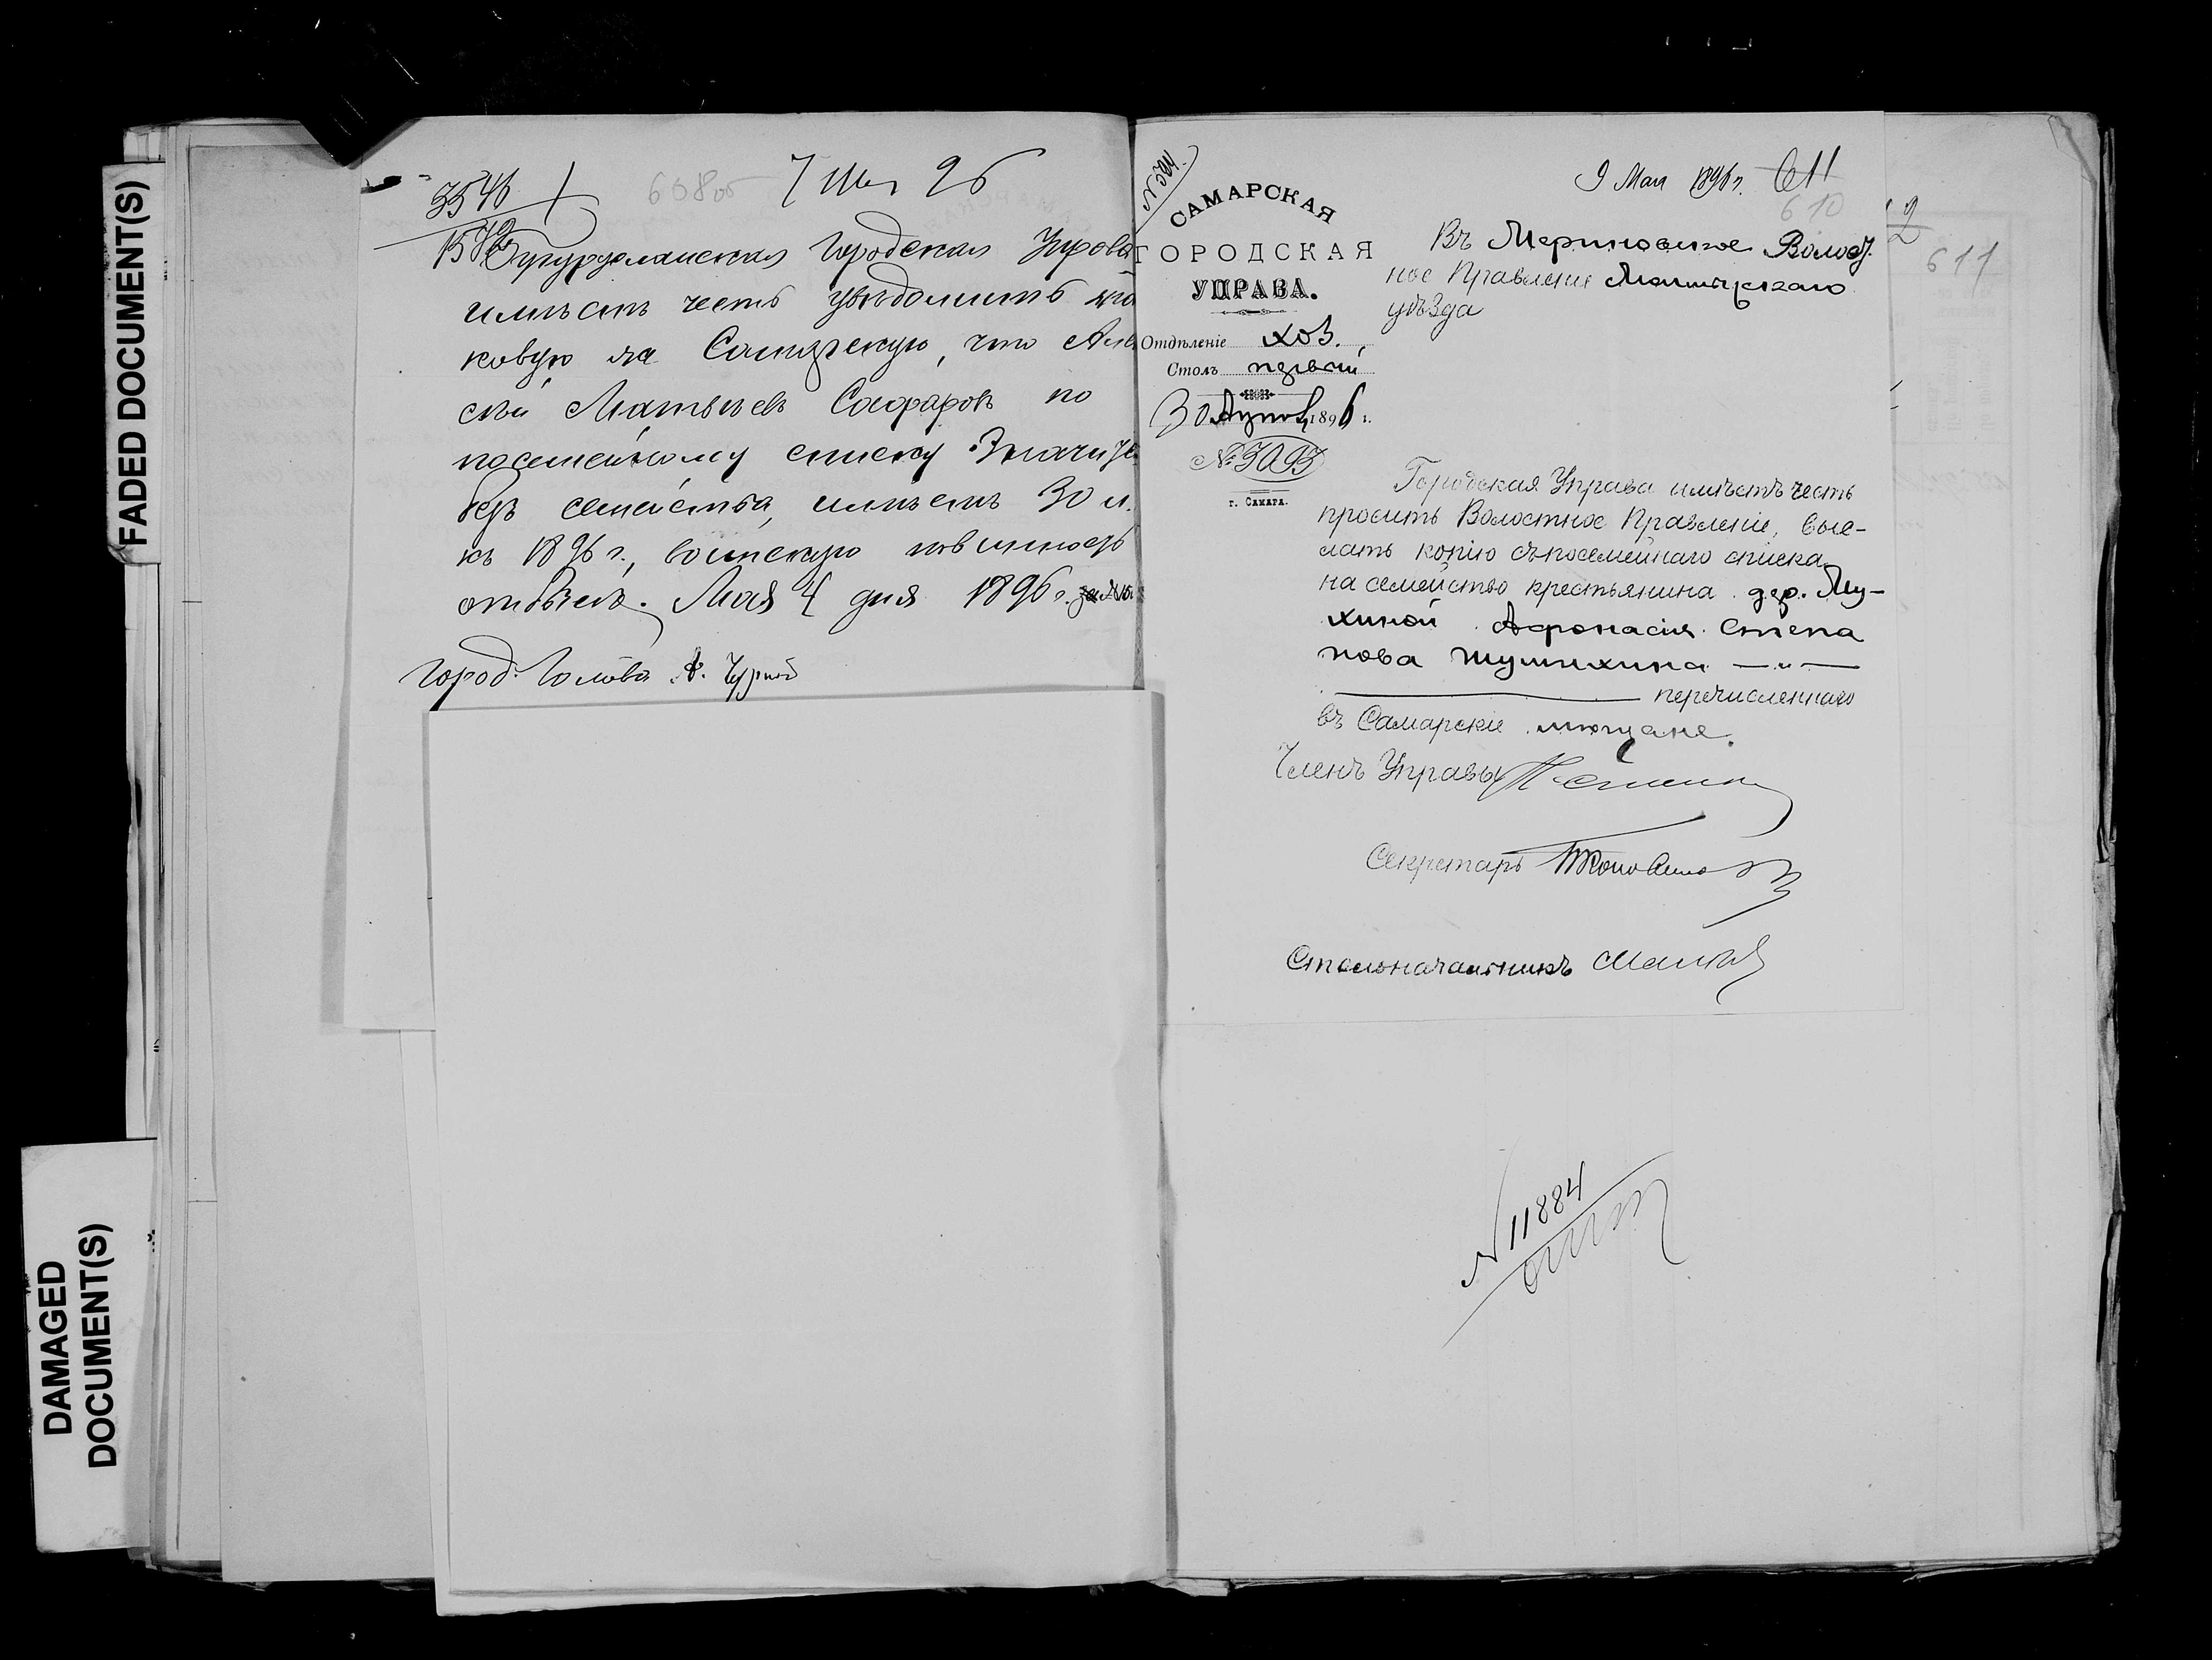 FADED DOCUMENT(S)
DAMAGED
DOCUMENT(S)
3546
7 Мая 96
608 об
Бугурусланская Городская Управа
имѣетъ честь увѣдомить
ковую на Самарскую, что
сѣй Матвѣевъ Сафаровъ по
посемейному списку значится
безъ семейства, имѣетъ 30 л.
къ 1896 г., воинскую повинность
отбылъ. Мая 4 дня 1896 г. за №
Город. Голова А.
САМАРСКАЯ
ГОРОДСКАЯ
УПРАВА.
Отдѣленіе хоз.
Столъ первый
30 Апрѣл 1896 г.
№ 3093
г. САМАРА.
9 Мая 1896 г. 611
610
611
Въ Мериновское Волост.
ное Правленіе
уѣзда
Городская Управа имѣетъ честь
просить Волостное Правленіе, выс-
лать копію съ посемейнаго списка
на семейство крестьянина дер. Му-
хиной Афонасія Степа
нова Шумихина — „ —
перечисленнаго
въ Самарскіе мѣщане.
Членъ Управы
Секретарь
Столоначальникъ
№ 11884